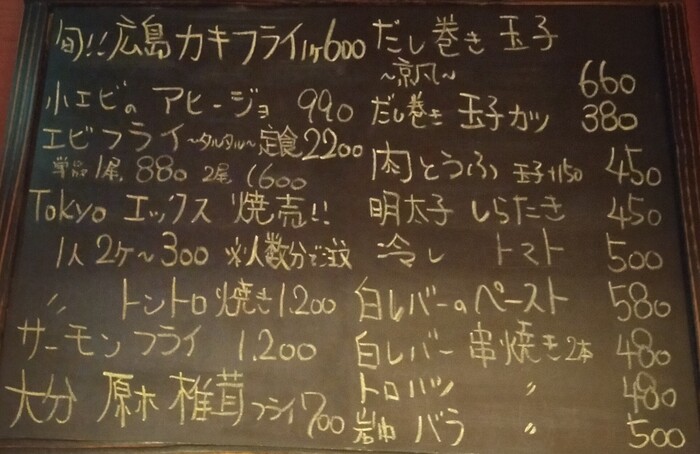 旬!! 広島カキフライ 1ケ600
小エビのアヒージョ 990
エビフライ ~タルタル~ 定食 2200
単品 1尾 880 2尾 1600
Tokyo エックス 焼売!!
1人 2ケ~300 ※人数分で注文
〃 トントロ焼き 1.200
サーモンフライ 1.200
大分 原木 椎茸フライ 700
だし巻き 玉子
~京風~ 660
だし巻き 玉子カツ 380
肉とうふ 玉子+150 450
明太子 しらたき 450
冷し トマト 500
白レバーのペースト 580
白レバー 串焼き2本 480
トロハツ 〃 480
岩中 バラ 〃 500